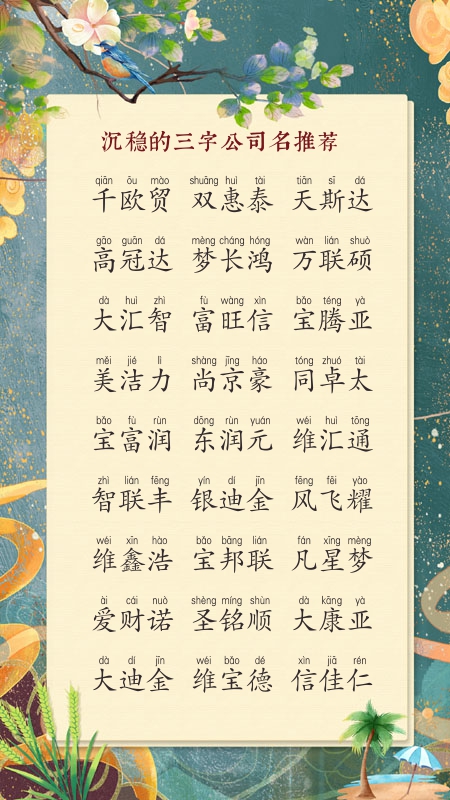 沉稳的三字公司名推荐
qiān ōu mào shuāng huì tài tiān sī dá
千欧贸 双惠泰 天斯达
gāo guān dá mèng cháng hóng wàn lián shuò
高冠达 梦长鸿 万联硕
dà huì zhì fù wàng xìn bǎo téng yà
大汇智 富旺信 宝腾亚
měi jié lì shàng jīng háo tóng zhuó tài
美洁力 尚京豪 同卓太
bǎo fù rùn dōng rùn yuán wéi huì tōng
宝富润 东润元 维汇通
zhì lián fēng yín dí jīn fēng fēi yào
智联丰 银迪金 风飞耀
wéi xīn hào bǎo bāng lián fán xīng mèng
维鑫浩 宝邦联 凡星梦
ài cái nuò shèng míng shùn dà kāng yà
爱财诺 圣铭顺 大康亚
dà dí jīn wéi bǎo dé xìn jiā rén
大迪金 维宝德 信佳仁